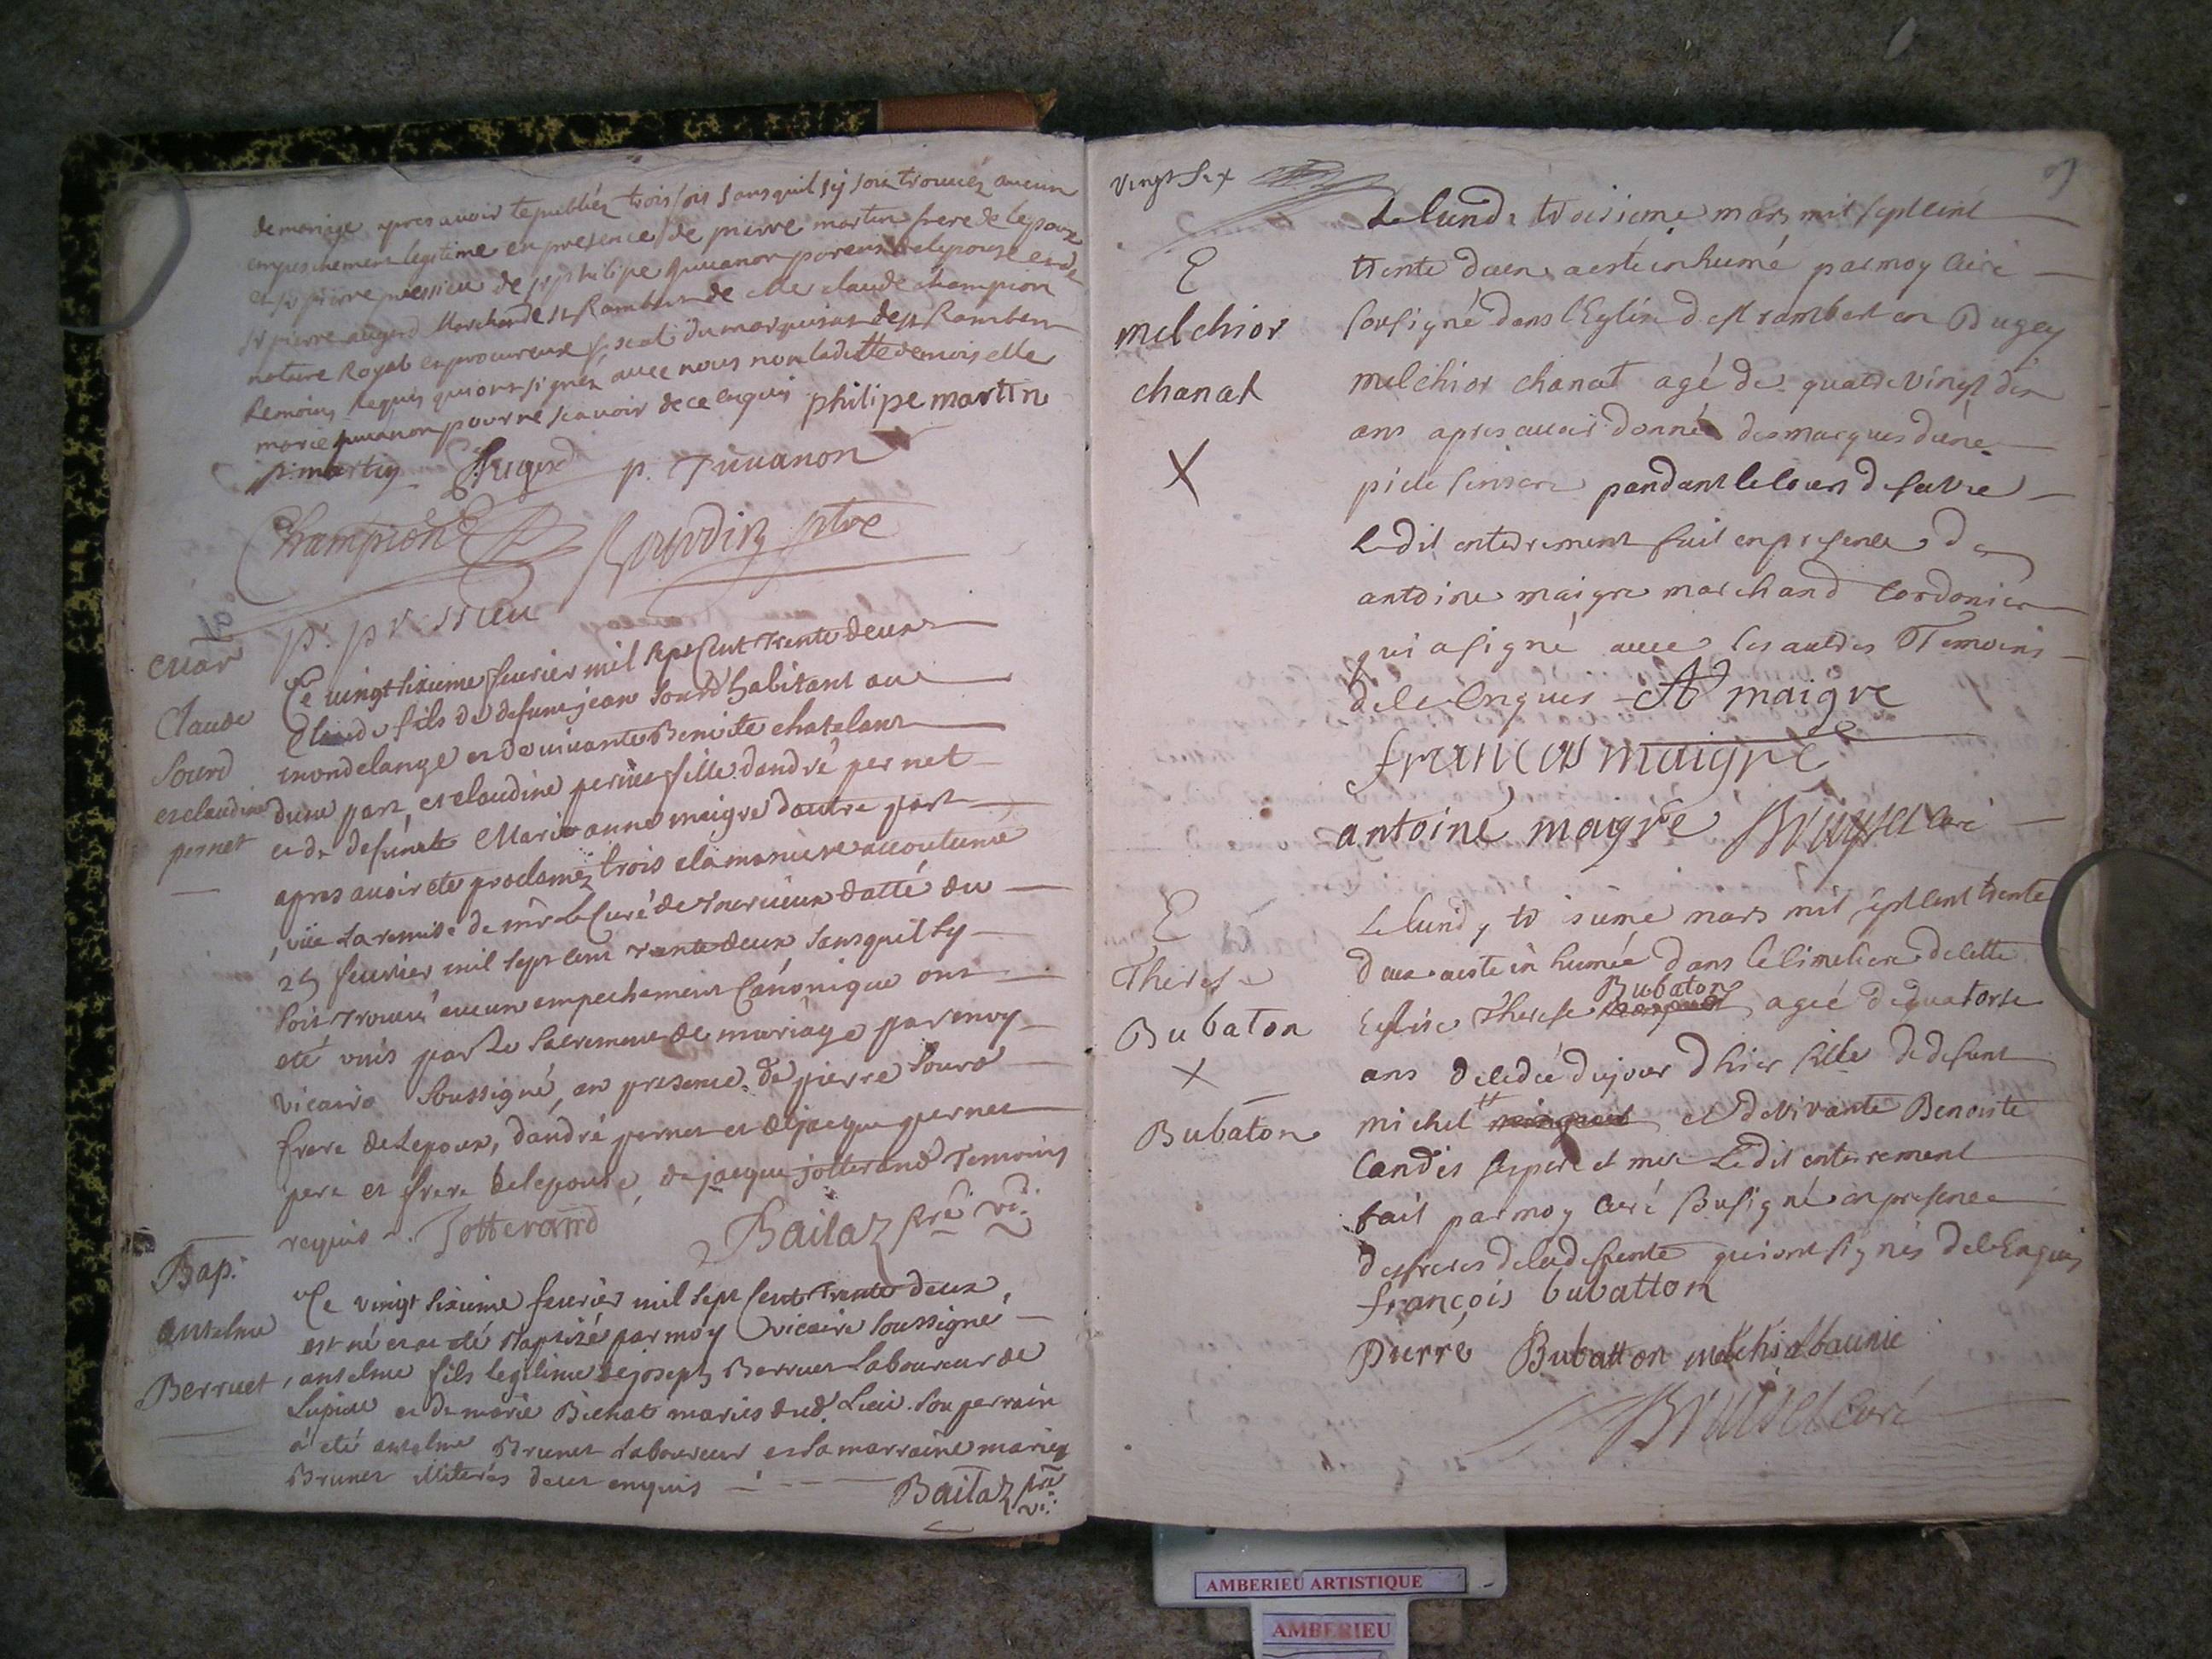 de mariage apres avoir été publiéz trois fois sans quil sy soit trouuéz aucun
empeschement legitime en presence de pierre martin frere de lepoux
et sr pierre pressieu de sr philipe juuanon parens de lepouse et de
sr pierre augerd Marchand de st Rambert de Me claude champion
notaire Royal et procureur fiscal du marquisat de st Rambert
temoins requis qui ont signéz auec nous non laditte demoiselle
marie juuanon pour ne scauoir de ce enquis philipe martin
p martin Augerd p. Juuanon
Champion ptre
p. pressieu
Mar
Claude
Sourd
et claudine
pernet
Ce uingt sixieme feurier mil sept Cent Trente deux
Claude fils de defunt jean Sourd habitant au
mondelange et de uiuante Benoite chatelans
dune part, et claudine pernet fille dandré pernet
et de defunte Marie anne maigre dautre part
apres auoir ete proclaméz trois a la maniere accoutumé
, vüe la remise de mr Le Curé de datté du
25 feurier mil sept cent trente deux sans quil sy
soit trouué aucun empechement Canonique ont
eté unis par Le Sacrement de mariage par moy
vicaire soussigné, en presence de pierre Sourd
frere de lepoux, dandré pernet et de jacque pernet
pere et frere de lepouse, de jacque jotterand Temoins
requis Jotterand Bailaz pre vi.
Bap.
Anselme
Berruet
Ce vingt sixieme feurier mil sept Cent Trente deux,
est né et a eté Baptizé par moy vicaire soussigné
, anselme fils legitime de joseph Berruet Laboureur de
Lupieu et de marie Bichat mariés dud. Lieu. Son perrain
a eté anselme Brunet Laboureur et la marraine marie
Brunet illiterés de ce enquis Bailaz pre
vi.
vingt six
E
melchior
chanat
X
Le lundi troisieme mars mil sept cent
trente deux a esté inhumé par moy Curé
sousigné dans l'Eglise de st rambert en Bugey
melchior chanat agé de quatre vingt dix
ans apres auoir donné des marques d'une
piété sinsere pandant le cours de sa vie
Le dit enterrement fait en presence de
antoine maigre marchand Cordonier
qui a signé auec les autres Temoins
de ce enquis A maigre
françois maigre
antoine maigre Bruiset Curé
E
Therese
Bubaton
X
Bubaton
Le lundy troisieme mars mil sept cent trente
deux a esté inhumée dans le cimetiere de cette
Bubaton
Eglise Therese agée de quatorse
ans decedée du jour d'hier fille de defunt
michel et de vivante Benoiste
Candis ses pere et mere Le dit enterrement
fait par moy Curé Sousigné en presence
des freres de la defunte qui ont signés de ce Enquis
françois bubatton
Pierre Bubatton
Bruiset curé
AMBERIEU ARTISTIQUE
AMBERIEU